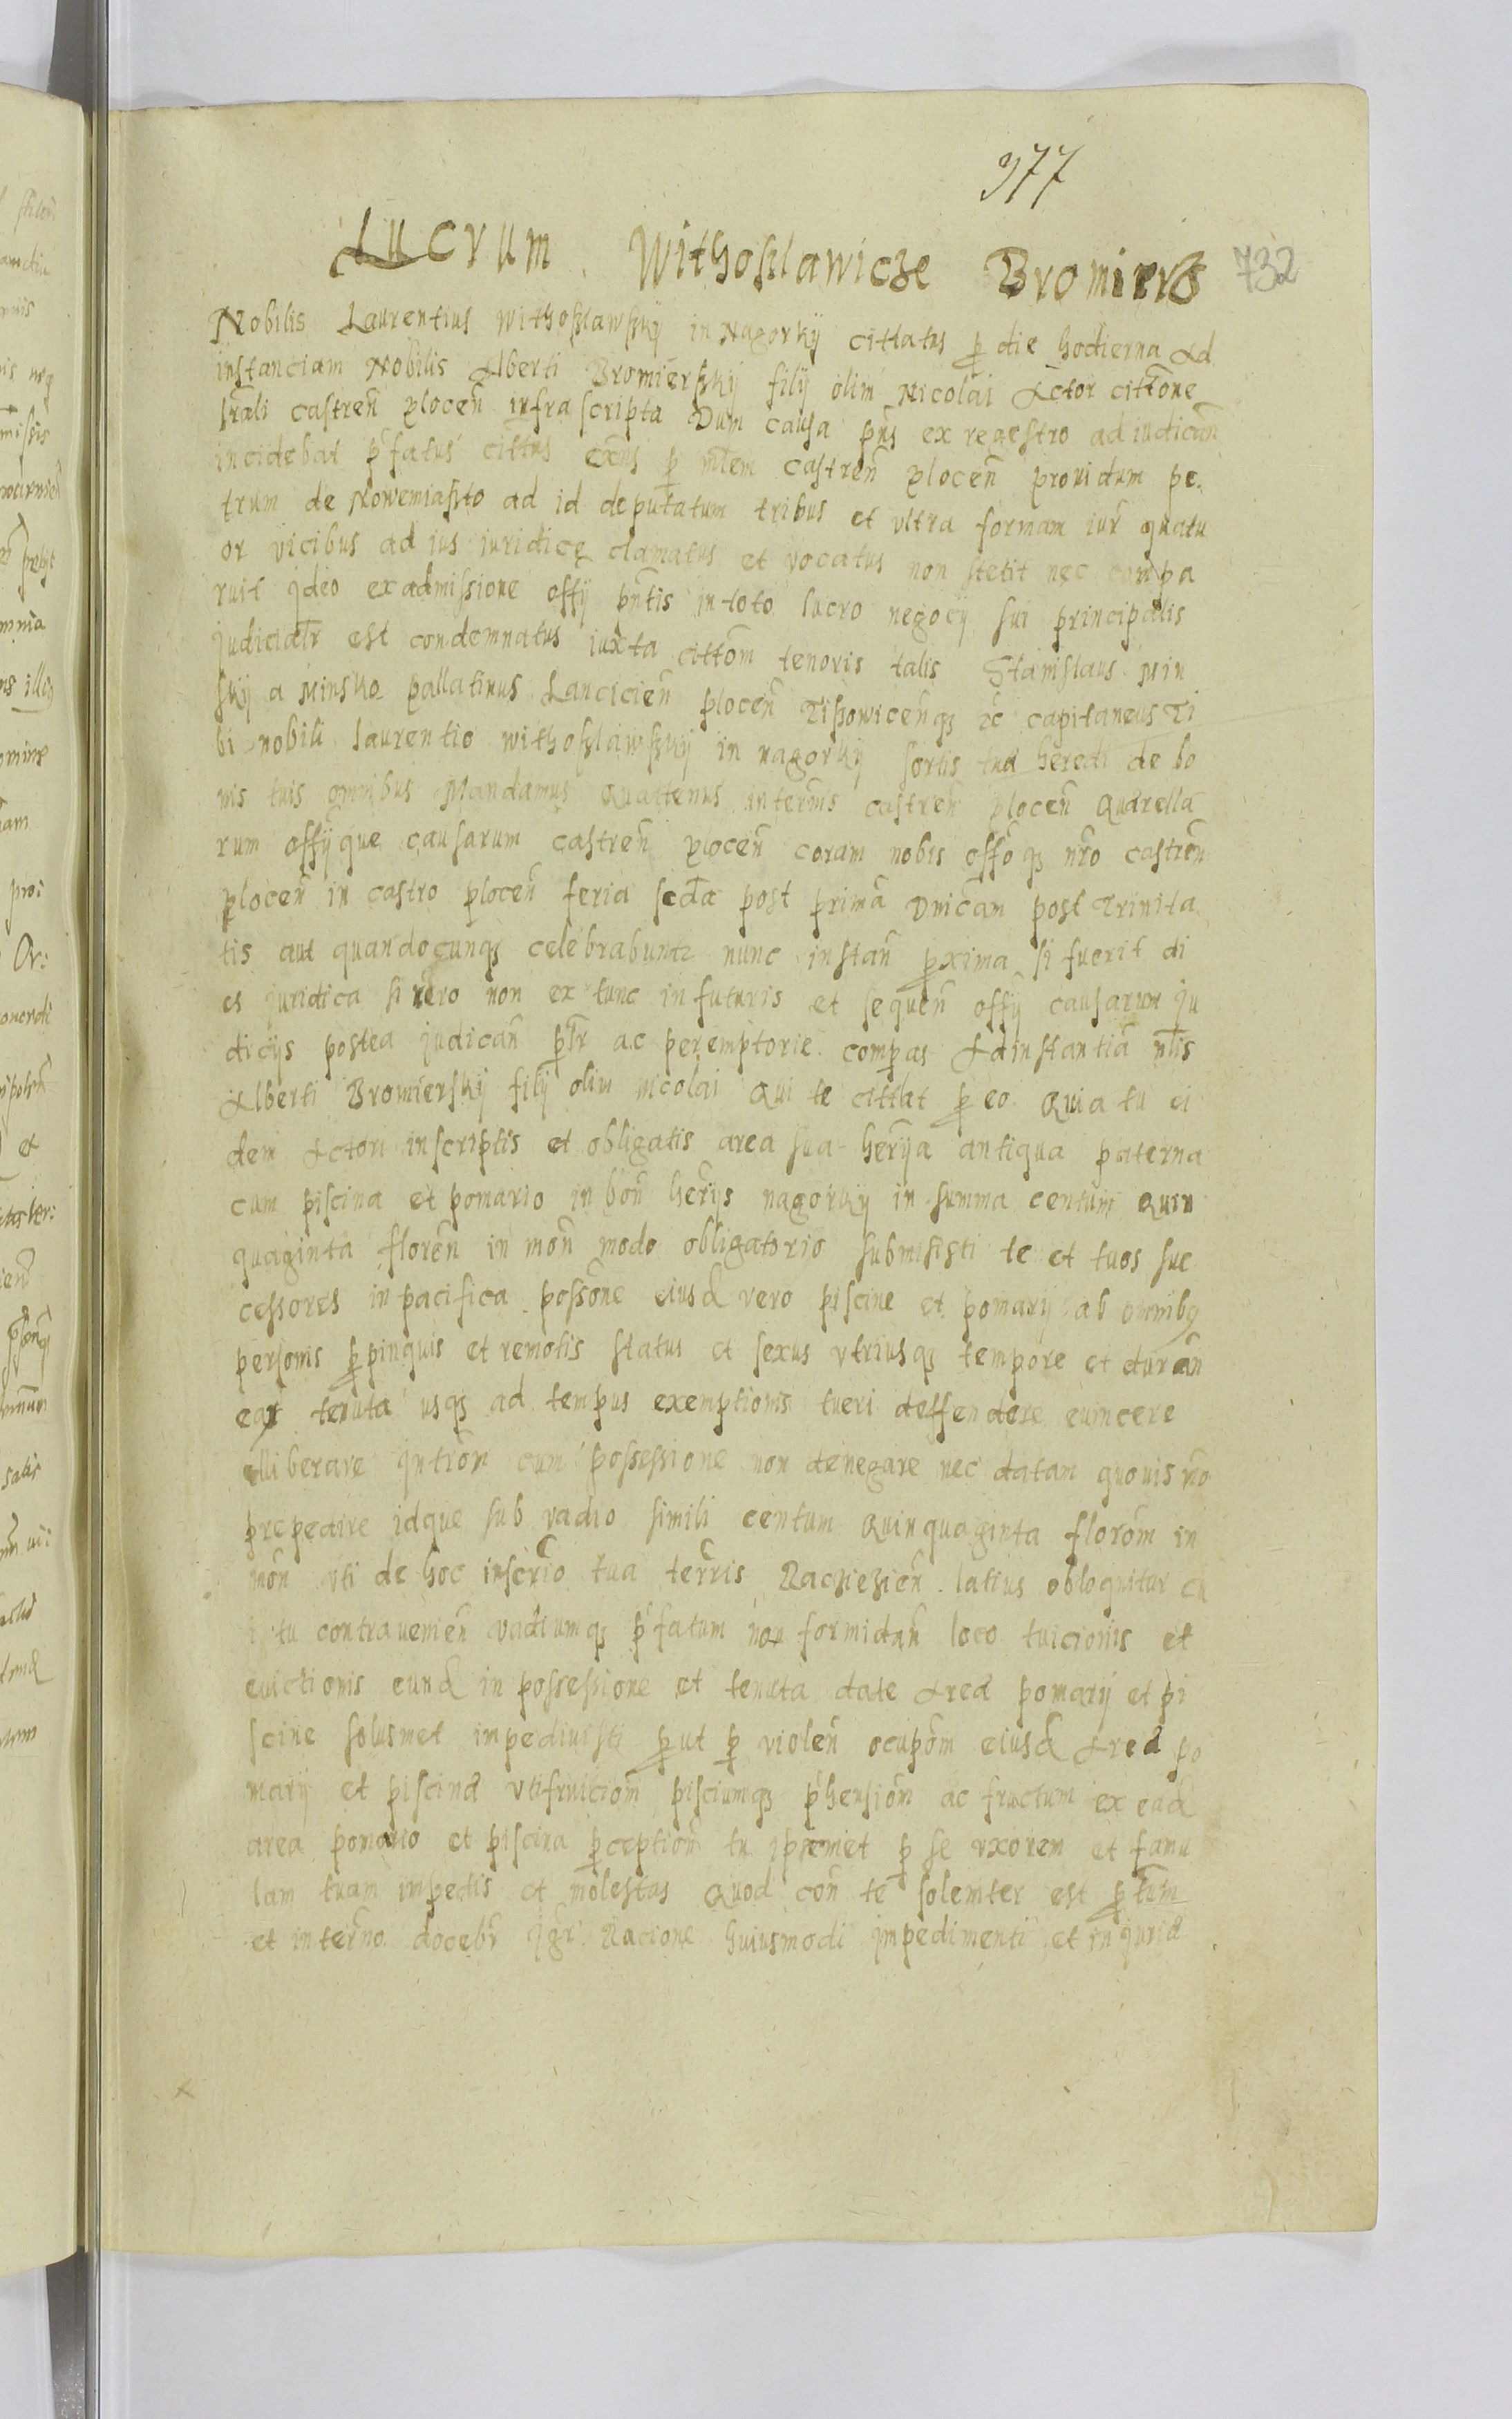 977
Lucrum Withosławicze Bromierz 732
Nobilis Laurentius withosławskÿ in Nagorkÿ cittatus p die hodierna Ad
instanciam Nobilis Alberti Bromierskÿ filÿ olim Nicolai Actor cittone
strali castreñ ploceñ infrascripta Dum causa pñs ex regestro adiudicañ
incidebat pfatus cittus p mlem castreñ ploceñ prouidum pe
trum de Nowemiasto ad id deputatum tribus et vltra formam iur quatu
or vicibus ad ius iuridicę clamatus et vocatus non stetit nec compa
ruit Ideo ex admissione offÿ pñtis in toto lucro negocÿ sui principalis
judicialr est condemnatus iuxta cittom tenoris talis Stanislaus Min
skÿ a Minsko pallatinus Lancicieñ ploceñ Tissowiceñqз zc capitaneus Ti
bi nobili laurentio withosławskÿ in nagorkÿ sortis tua heredi de bo
nis tuis omnibus Mandamus Quattenus in termis castreñ ploceñ Quærella
rum offÿque causarum castreñ ploceñ coram nobis offoqз nro castreñ
ploceñ in castro ploceñ feria scda post prima Dnicam post Trinita
tis aut quandocunqз celebrabuntz nunc instañ pxima si fuerit di
es juridica si vero non ex tunc in futuris et sequeñ offÿ causarum ju
dicÿs postea judicañ pltr ac peremptorie compas Ad instantia nlis
Alberti Bromierskÿ filÿ olim nicolai Qui te cittat p eo Quia tu ei
dem Actori inscriptis et obligatis area sua herÿa antiqua paterna
cum piscina et pomario in boñ herÿs nagorkÿ in summa centum Quin
quaginta floreñ in moñ modo obligatorio submisisti te et tuos suc
cessores in pacifica possone eiusd vero piscine et pomarÿ ab omnibз
personis ppinquis et remotis status et sexus vtriusqз tempore et durañ
ear tenuta usqз ad tempus exemptionis tueri deffendere euincere
elliberare Intrõm cum possessione non denegare nec datam quouis mo
prepedire idque sub vadio simili centum Quinquaginta florom in
moñ vti de hoc inscrio tua terris Raczieziеñ latius obloquitur Cu
i tu contraueñieñ vadiumqз pfatum non formidañ loco tuicionis et
euictionis eund in possessione et tenuta date Area pomarÿ et pi
scine solusmet impediuisti put p violeñ ocupom eiusd Area po
marÿ et piscina vtifruiciom pisciumqз phensiom ac fructum ex ead
area pomario et piscina pceptiom tu ipsemet p se vxorem et famu
lam tuam impedis et molestas Quod coñ te solemter est ptum
et in terno docebr Igr Racione huiusmodi impedimenti et injuria